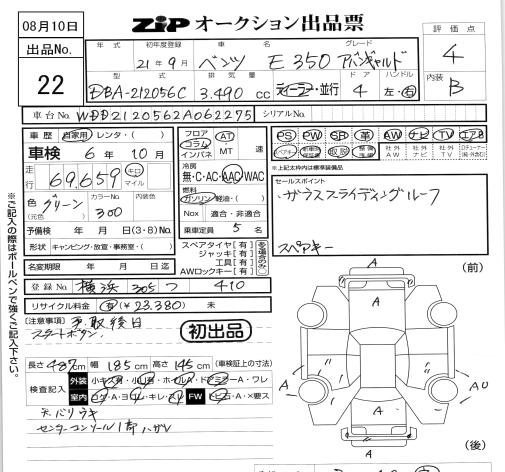 08月10日
ZiP オークション出品票
出品No. 22
年式 初年度登録 21年9月
車名 ベンツ
グレード E350 アバンギャルド
評価点 4
内装 B
型式 DBA-212056C
排気量 3,490 cc
ディーラー・並行
ドア 4
ハンドル 左・右
車台No. WDD2120562A062275
シリアルNo.
車歴 自家用・レンタ・( )
車検 6年10月
走行 69,659 キロ マイル
色(元色) グリーン
カラーNo. 300
内装色
予備検 年 月 日(3・8)No.
形状 キャンピング・放宣・事務室・( )
名変期限 年 月 日迄
登録No. 横浜 305 つ 410
リサイクル料金 有(¥23,380) 未
フロア コラム インパネ
AT MT 速
冷房 無・C・AC・AAC・WAC
燃料 ガソリン・軽油・( )
Nox 適合・非適合
乗車定員 5名
スペアタイヤ[有]
ジャッキ[有]
工具[有]
AWロックキー[有]
を場合のみ○
PS PW SR 革 AW ナビ TV エアB
スペアキー 取説
社外AW 社外ナビ 社外TV
※上記太枠内は標準装備品
セールスポイント
サラウススライディングルーフ
スペアキー
[注意事項] 取後日
スタートボタン
初出品
長さ 487cm 幅 185cm 高さ 145cm (車検証上の寸法)
検査記入 外装 小キズ有・小凹有・ホイルA・ドアミラーA・ワレ
室内 コゲ・A・ヨゴレ・キレ・スレ FW トビ石・A・×要ス
天バリウキ
センターコンソール1部ハガレ
※ご記入の際はボールペンで強くご記入下さい。
(前)
A
A
A
A
A
A
AU
A
(後)